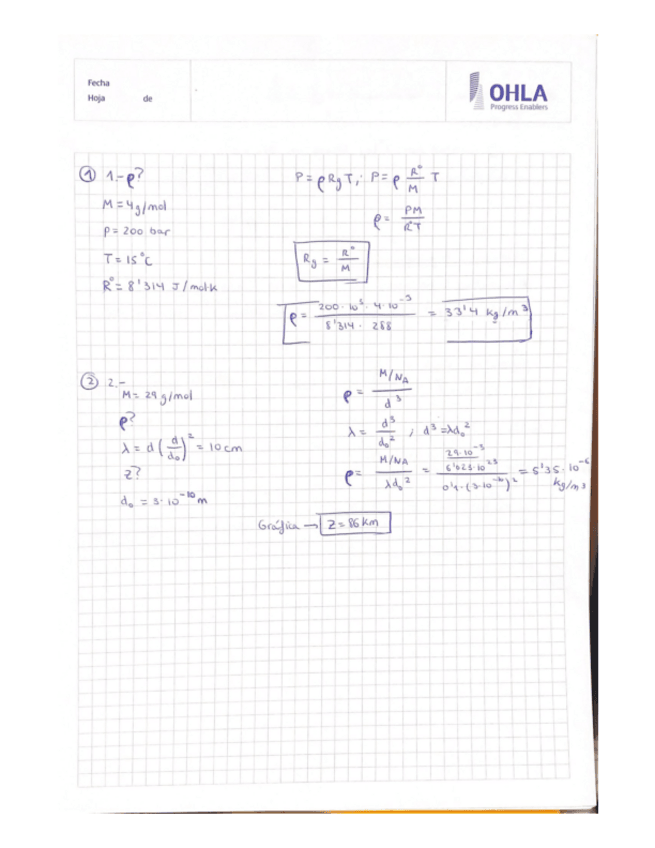 Fecha
Hoja de
OHLA
Progress Enablers
① 1.- ρ?
M = 4 g/mol
P = 200 bar
T = 15°C
R° = 8'314 J/mol·K
P = ρ Rg T ; P = ρ R°/M T
ρ = PM/R°T
Rg = R°/M
ρ = 200·10⁵·4·10⁻³ / 8'314 · 288 = 33'4 kg/m³
② 2.-
M = 29 g/mol
ρ?
λ = d (d/d₀)² = 10 cm
Z?
d₀ = 3·10⁻¹⁰ m
ρ = M/NA / d³
λ = d³/d₀² ; d³ = λd₀²
ρ = M/NA / λd₀² = 29·10⁻³ / 6'023·10²³ / 0'1·(3·10⁻¹⁰)² = 5'35·10⁻⁶ kg/m³
Gráfica → Z = 86 km